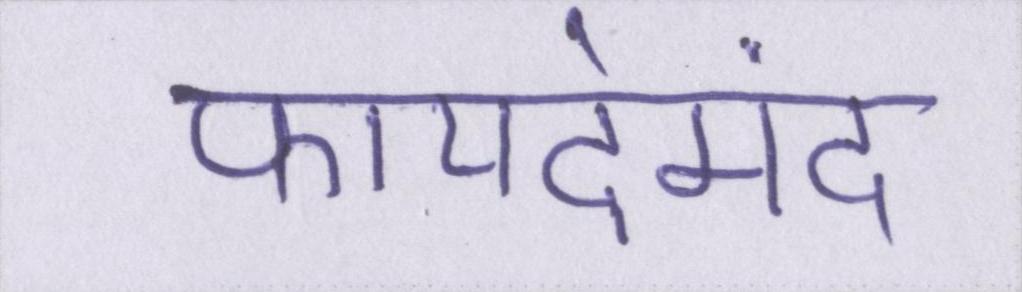 फायदेमंद